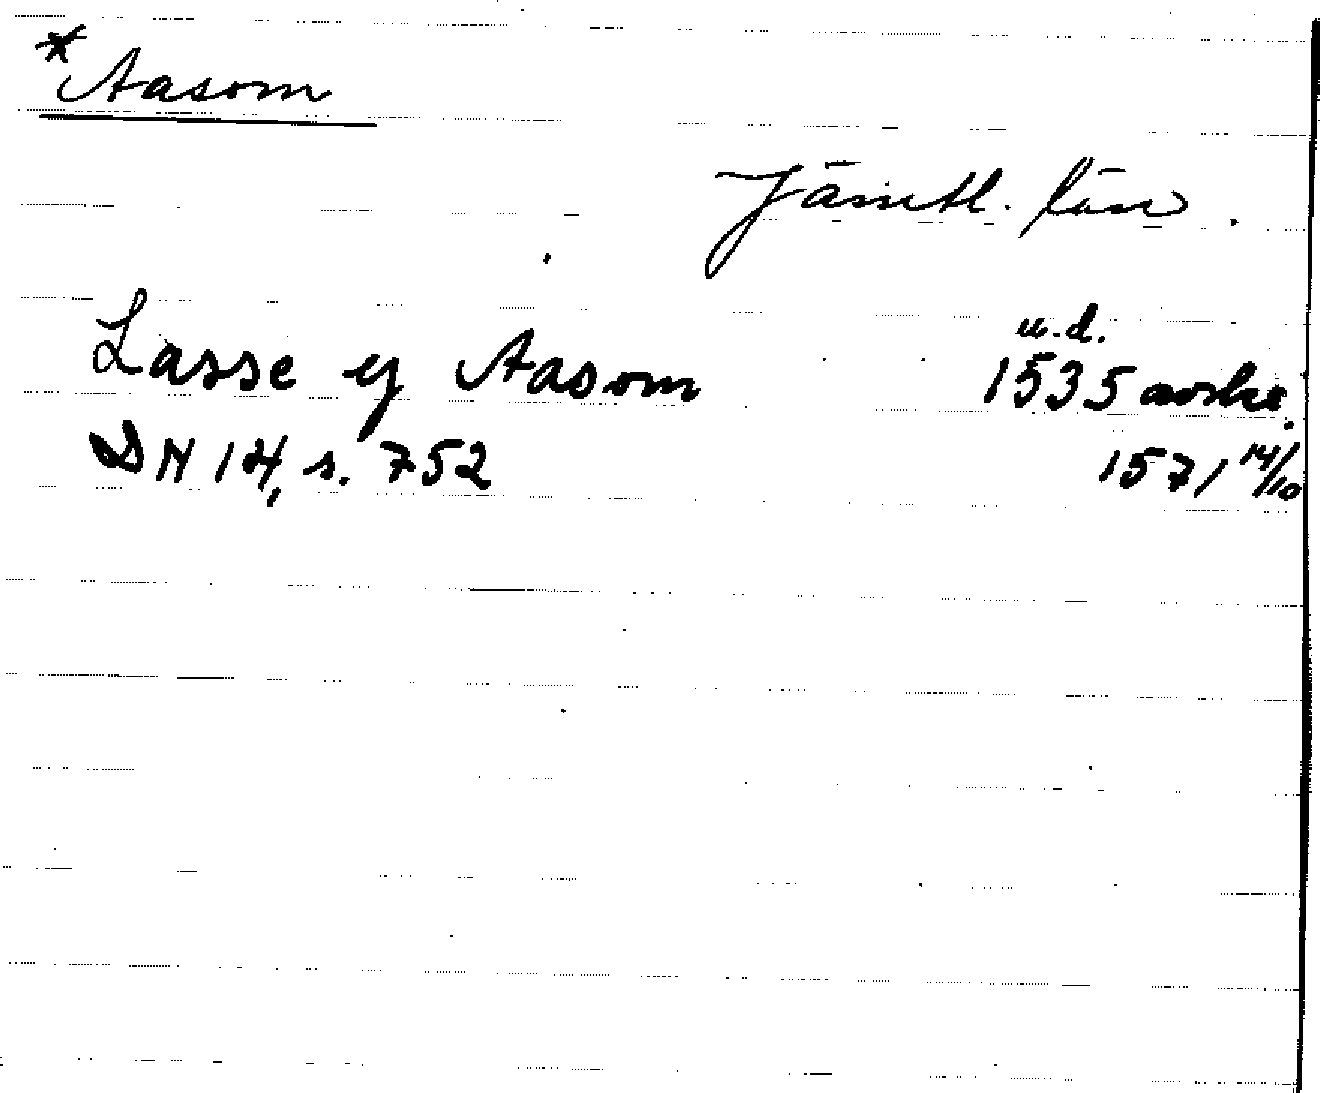 *Aasom
Jämtl. län.
Lasse y Aasom
u.d.
1535 norske.
DN 14, s. 752
1571 14/10